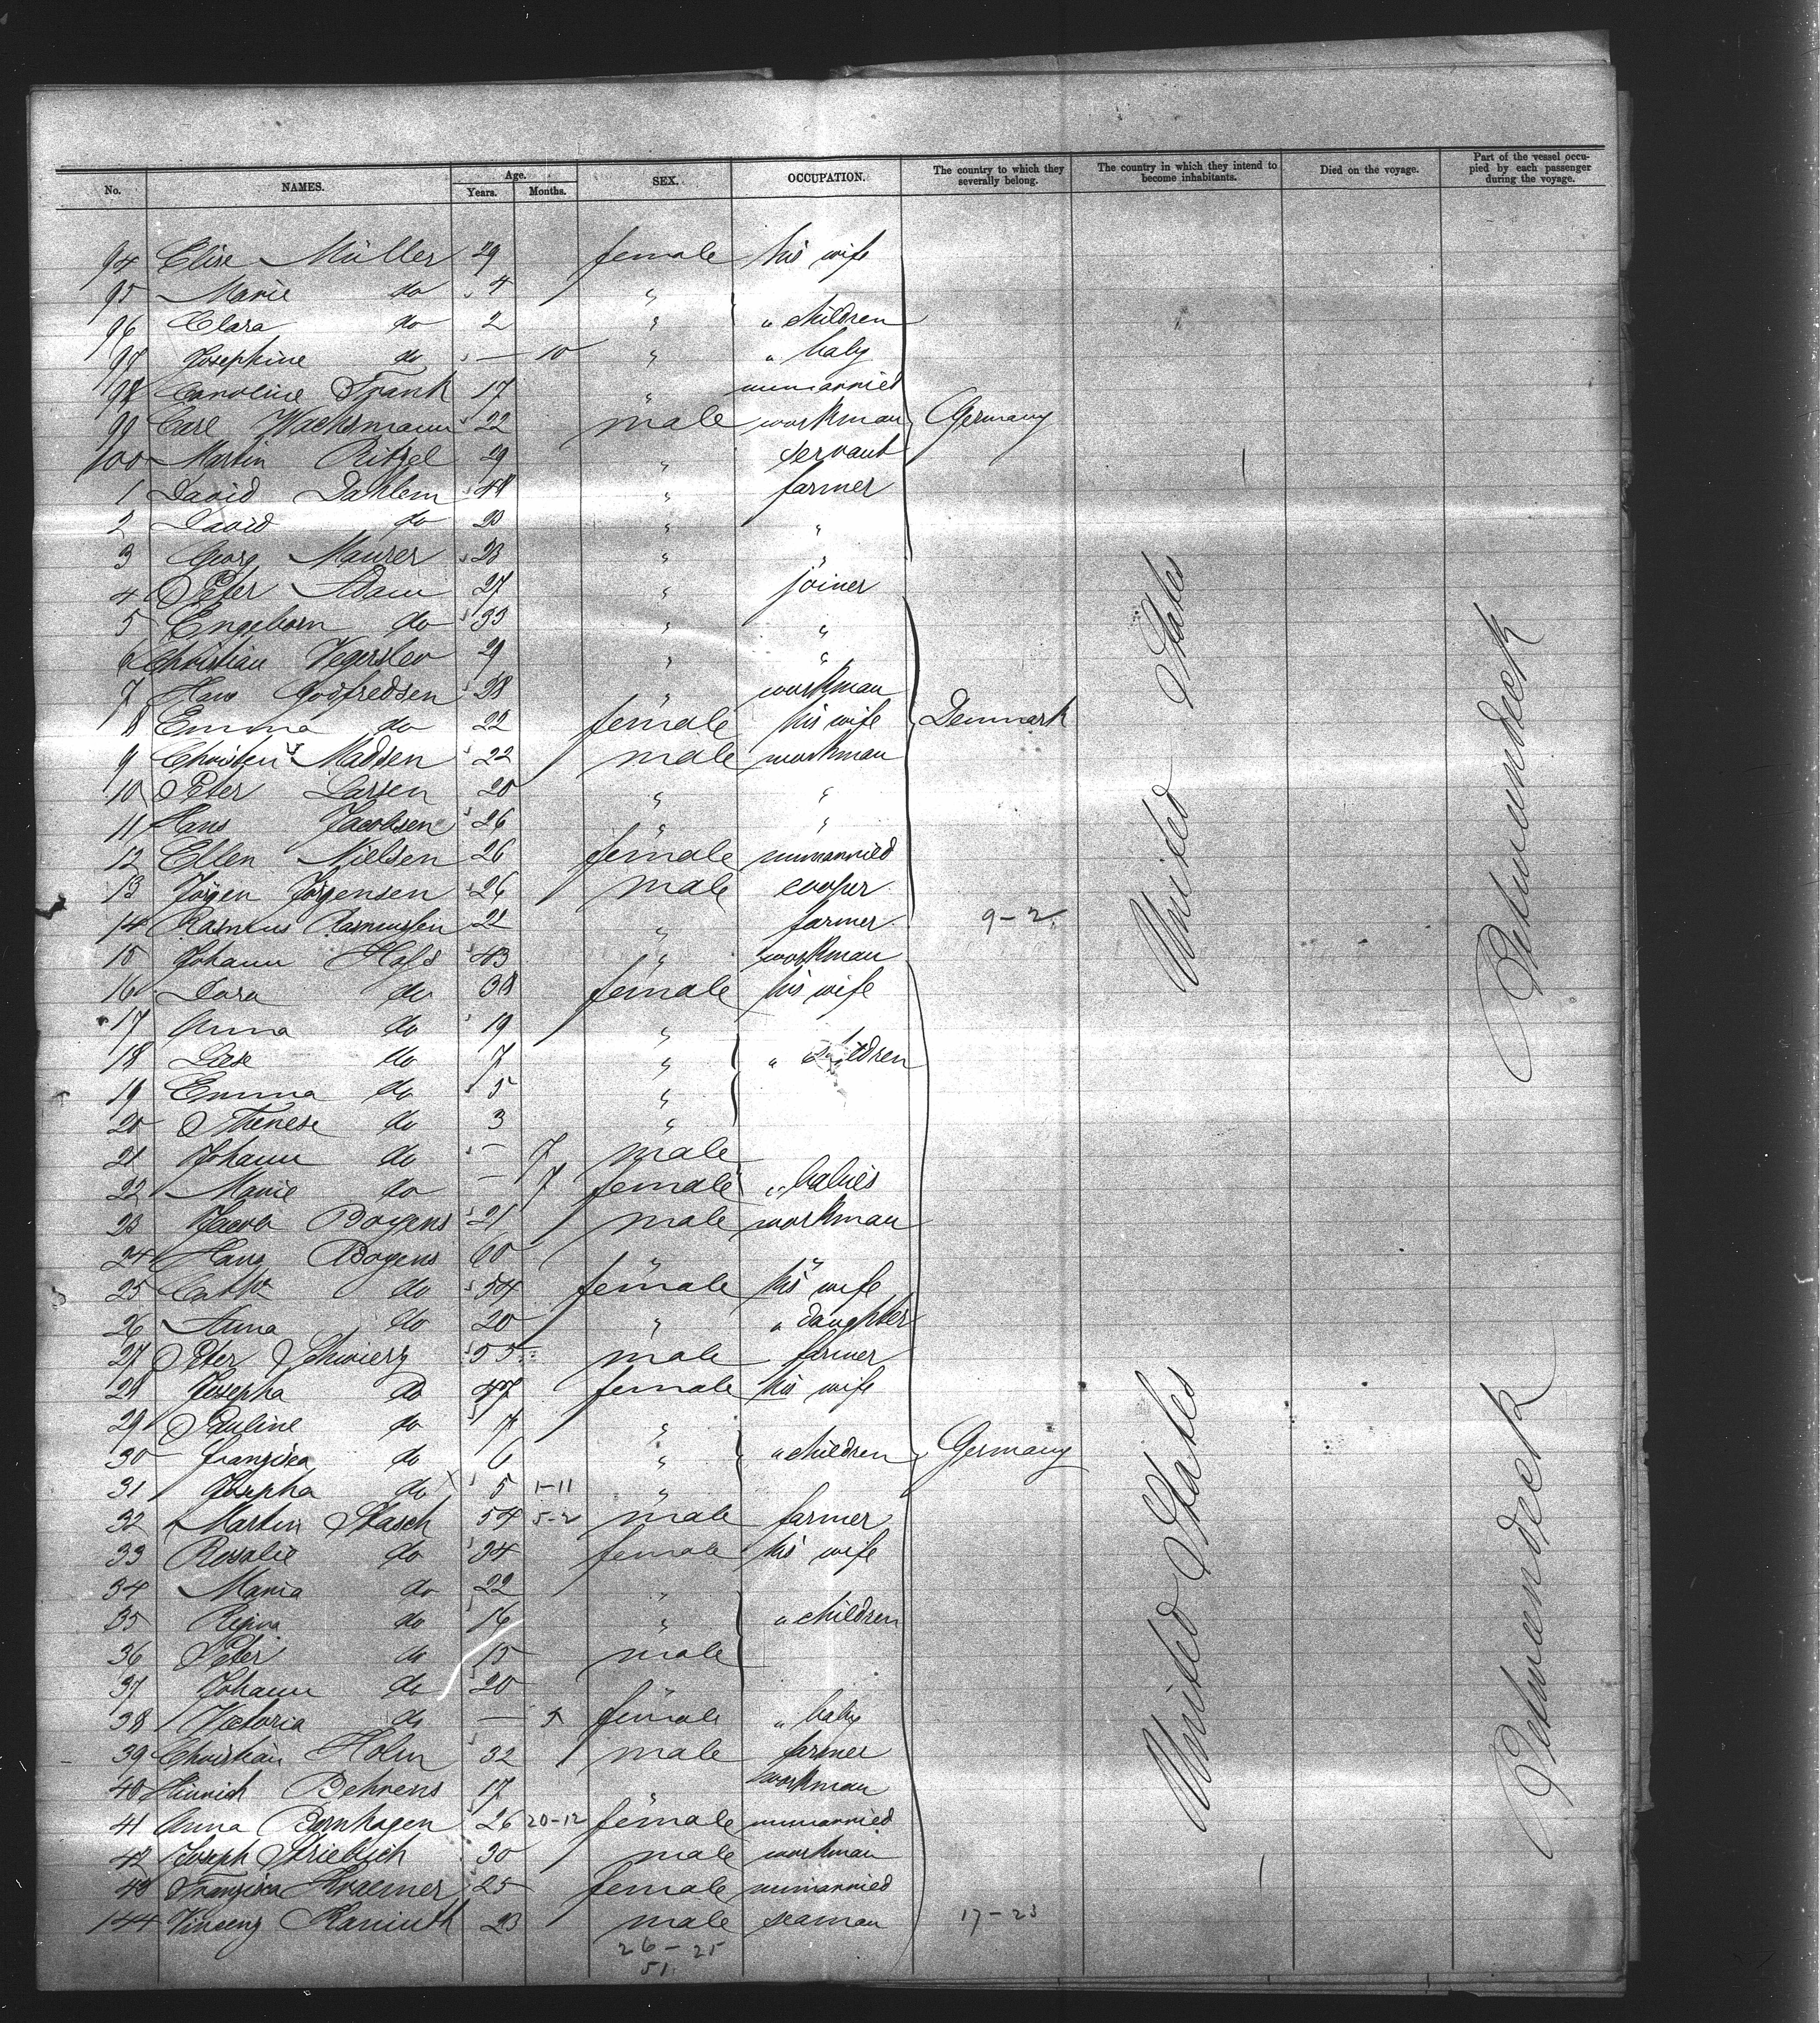 No. NAMES. Age. Years. Months. SEX. OCCUPATION. The country to which they severally belong. The country in which they intend to become inhabitants. Died on the voyage. Part of the vessel occupied by each passenger during the voyage.
94 Elise Müller 29 female his wife
95 Marie do 4 "
96 Clara do 2 " " children
97 Josephine do — 10 " " baby
98 Caroline Frank 17 " unmarried
99 Carl Wachsmann 22 male workman Germany
100 Martin Ritzel 29 " servant
1 David Dahlem 48 " farmer
2 David do 20 " "
3 Georg Maurer 23 " "
4 Peter Adam 27 " joiner
5 Engeborn do 33 " "
6 Christian Vegerslev 29 " "
7 Hans Godfredsen 28 " workman
8 Emma do 22 female his wife Denmark
9 Christen Madsen 22 male workman
10 Peter Larsen 20 " "
11 Hans Jacobsen 26 " "
12 Ellen Nielsen 26 female unmarried
13 Jörgen Jörgensen 26 male cooper
14 Rasmus Rasmussen 21 " farmer 9-2
15 Johann Hass 43 " workman
16 Dora do 38 female his wife
17 Anna do 19 "
18 Liese do 7 " " children
19 Emma do 5 "
20 Therese do 3 "
21 Johann do — 7 male
22 Marie do — 7 female " babies
23 Jacob Boyens 21 male workman
24 Hans Boyens 60 " "
25 Cath do 54 female his wife
26 Anna do 20 " " daughter
27 Peter Schwierz 55 male farmer
28 Josepha do 47 female his wife
29 Pauline do 7 "
30 Franzisca do 6 " " children Germany
31 Josepha do x 5 1-11 "
32 Martin Stasch 54 5-2 male farmer
33 Rosalie do 34 female his wife
34 Maria do 22 "
35 Regina do 16 " " children
36 Peter do 15 male
37 Johann do 20 "
38 Victoria do — 5 female " baby
39 Christian Holm 32 male farmer
40 Hinrich Behrens 17 " workman
41 Anna Bornhagen 26 20-12 female unmarried
42 Joseph 30 male workman
43 Franzisca Kraemer 25 female unmarried
144 Vinzenz 23 male seaman 17-23
26-25
51.
United States
United States
Zwischendeck
Zwischendeck